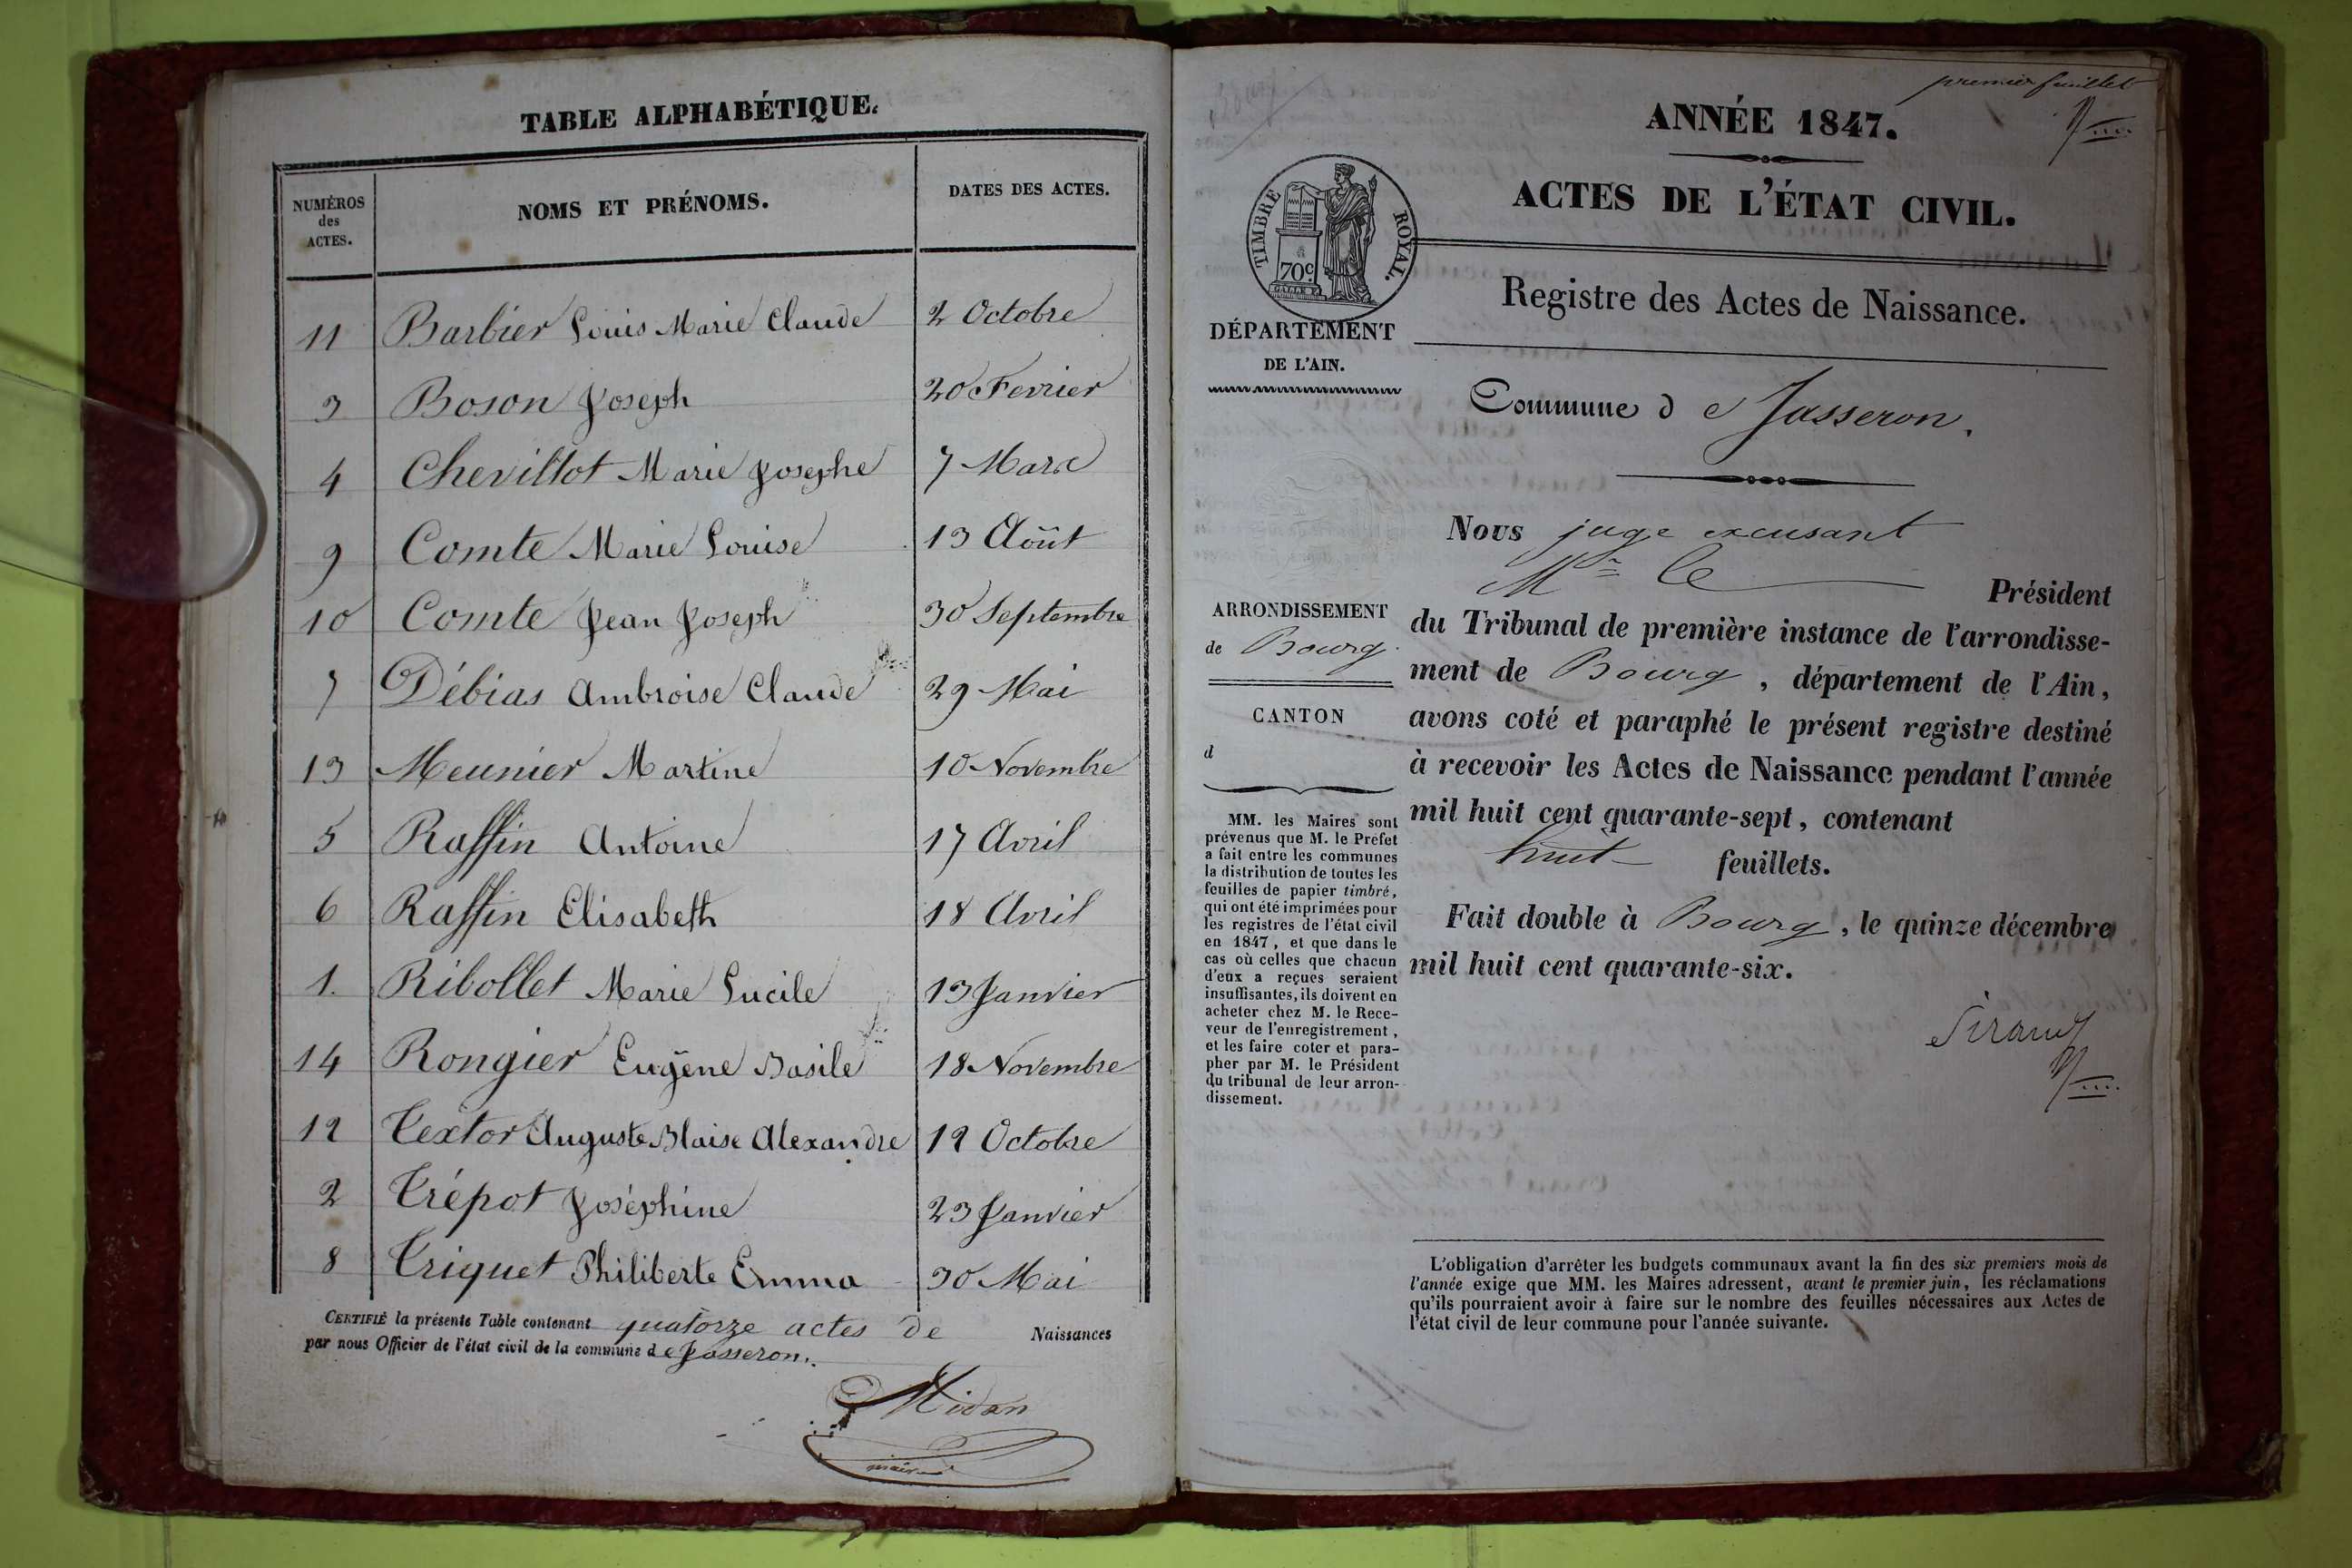 TABLE ALPHABÉTIQUE.
NUMÉROS
des
ACTES.
NOMS ET PRÉNOMS.
DATES DES ACTES.
11 Barbier Louis Marie Claude 2 Octobre
3 Boson Joseph 20 Fevrier
4 Chevillot Marie Josephe 7 Mars
9 Comte Marie Louise 13 Août
10 Comte Jean Joseph 30 Septembre
7 Débias Ambroise Claude 29 Mai
13 Meunier Martine 10 Novembre
5 Raffin Antoine 17 Avril
6 Raffin Elisabeth 18 Avril
1. Ribollet Marie Lucile 13 Janvier
14 Rongier Eugène Basile 18 Novembre
12 Textor Auguste Blaise Alexandre 12 Octobre
2 Trépot Joséphine 23 Janvier
8 Triquet Philiberte Emma 30 Mai
CERTIFIÉ la présente Table contenant quatorze actes de Naissances
par nous Officier de l'état civil de la commune de Jasseron.
Midan
maire
premier feuillet
ANNÉE 1847.
ACTES DE L'ÉTAT CIVIL.
TIMBRE ROYAL.
70c
Registre des Actes de Naissance.
DÉPARTEMENT
DE L'AIN.
Commune d e Jasseron.
Nous juge excusant
Mr le Président
du Tribunal de première instance de l'arrondisse-
ment de Bourg, département de l'Ain,
avons coté et paraphé le présent registre destiné
à recevoir les Actes de Naissance pendant l'année
mil huit cent quarante-sept, contenant
huit feuillets.
Fait double à Bourg, le quinze décembre
mil huit cent quarante-six.
Sirand
ARRONDISSEMENT
de Bourg
CANTON
d
MM. les Maires sont
prévenus que M. le Préfet
a fait entre les communes
la distribution de toutes les
feuilles de papier timbré,
qui ont été imprimées pour
les registres de l'état civil
en 1847, et que dans le
cas où celles que chacun
d'eux a reçues seraient
insuffisantes, ils doivent en
acheter chez M. le Rece-
veur de l'enregistrement,
et les faire coter et para-
pher par M. le Président
du tribunal de leur arron-
dissement.
L'obligation d'arrêter les budgets communaux avant la fin des six premiers mois de
l'année exige que MM. les Maires adressent, avant le premier juin, les réclamations
qu'ils pourraient avoir à faire sur le nombre des feuilles nécessaires aux Actes de
l'état civil de leur commune pour l'année suivante.